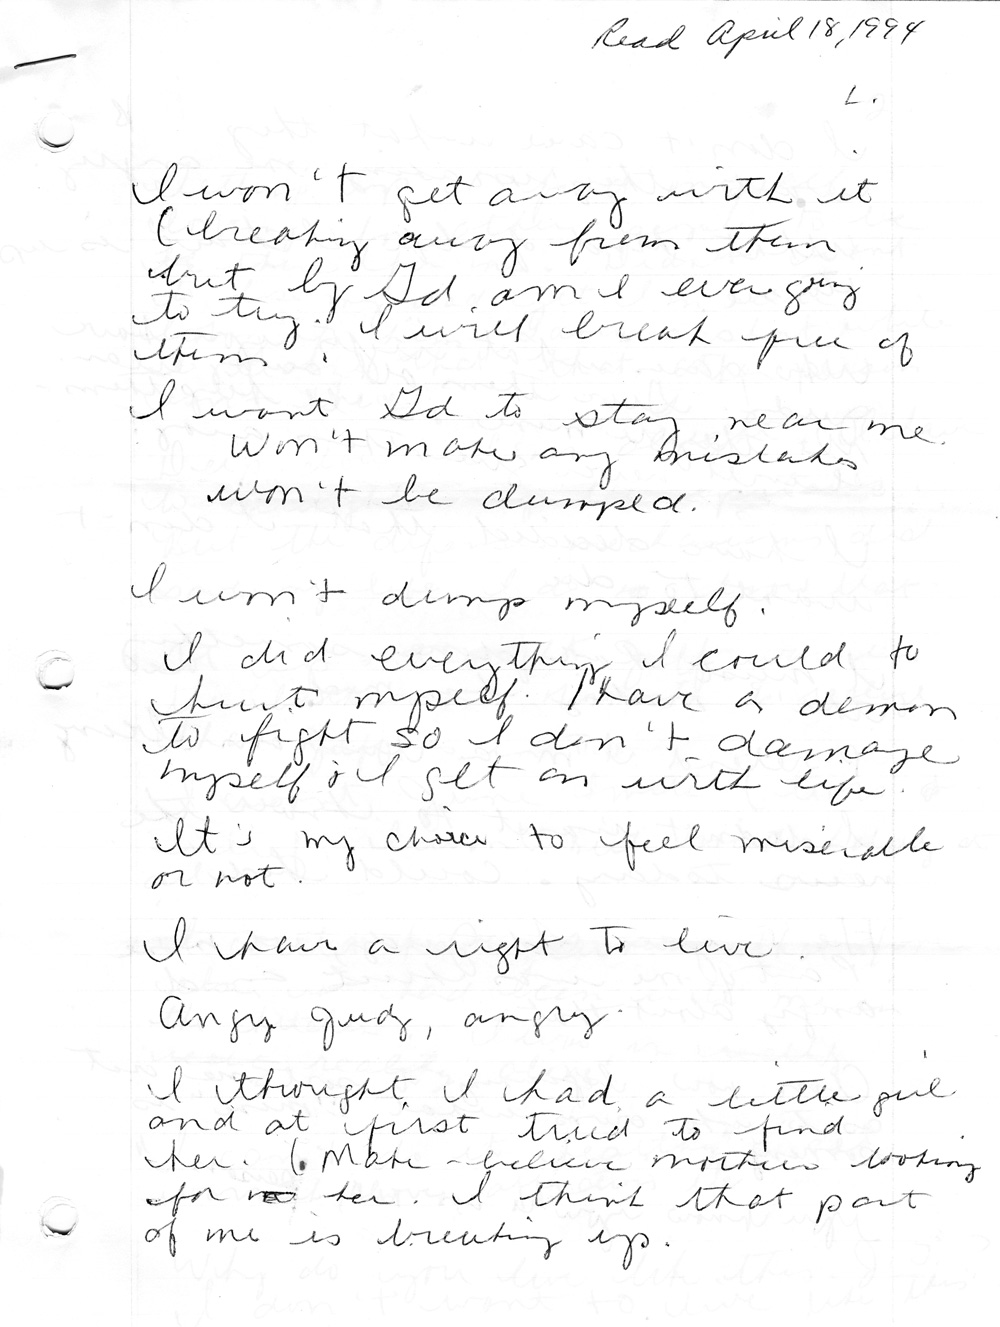 Read April 18, 1994
L.
I won't get away with it
(breaking away from them
but by G-d am I ever going
to try. I will break free of
them.
I want G-d to stay near me.
Won't make any mistakes
won't be dumped.
I won't dump myself.
I did everything I could to
hurt myself. I have a demon
to fight so I don't damage
myself & I get on with life.
It's my choice to feel miserable
or not.
I have a right to live.
Angry Judy, angry.
I thought I had a little girl
and at first tried to find
her. (Make-believe mother looking
for her. I think that part
of me is breaking up.